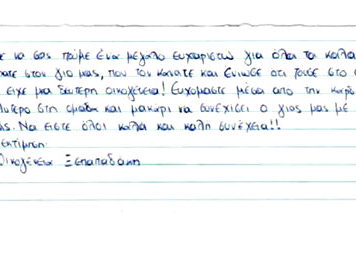 ε να σας πούμε ένα μεγάλο ευχαριστώ για όλα τα καλα
ατε στον γιο μας, που τον κανατε και ένιωσε οτι τόσο στο
είχε μια δεύτερη οικογένεια! Ευχομαστε μέσα απο την καρδ
λυτερο στη ομαδα και μακαρι να συνεχισει ο γιος μας με
ας. Να ειστε όλοι καλα και καλη συνέχεια!!
εκτιμηση
Οικογένεια Ξεπαπαδακη